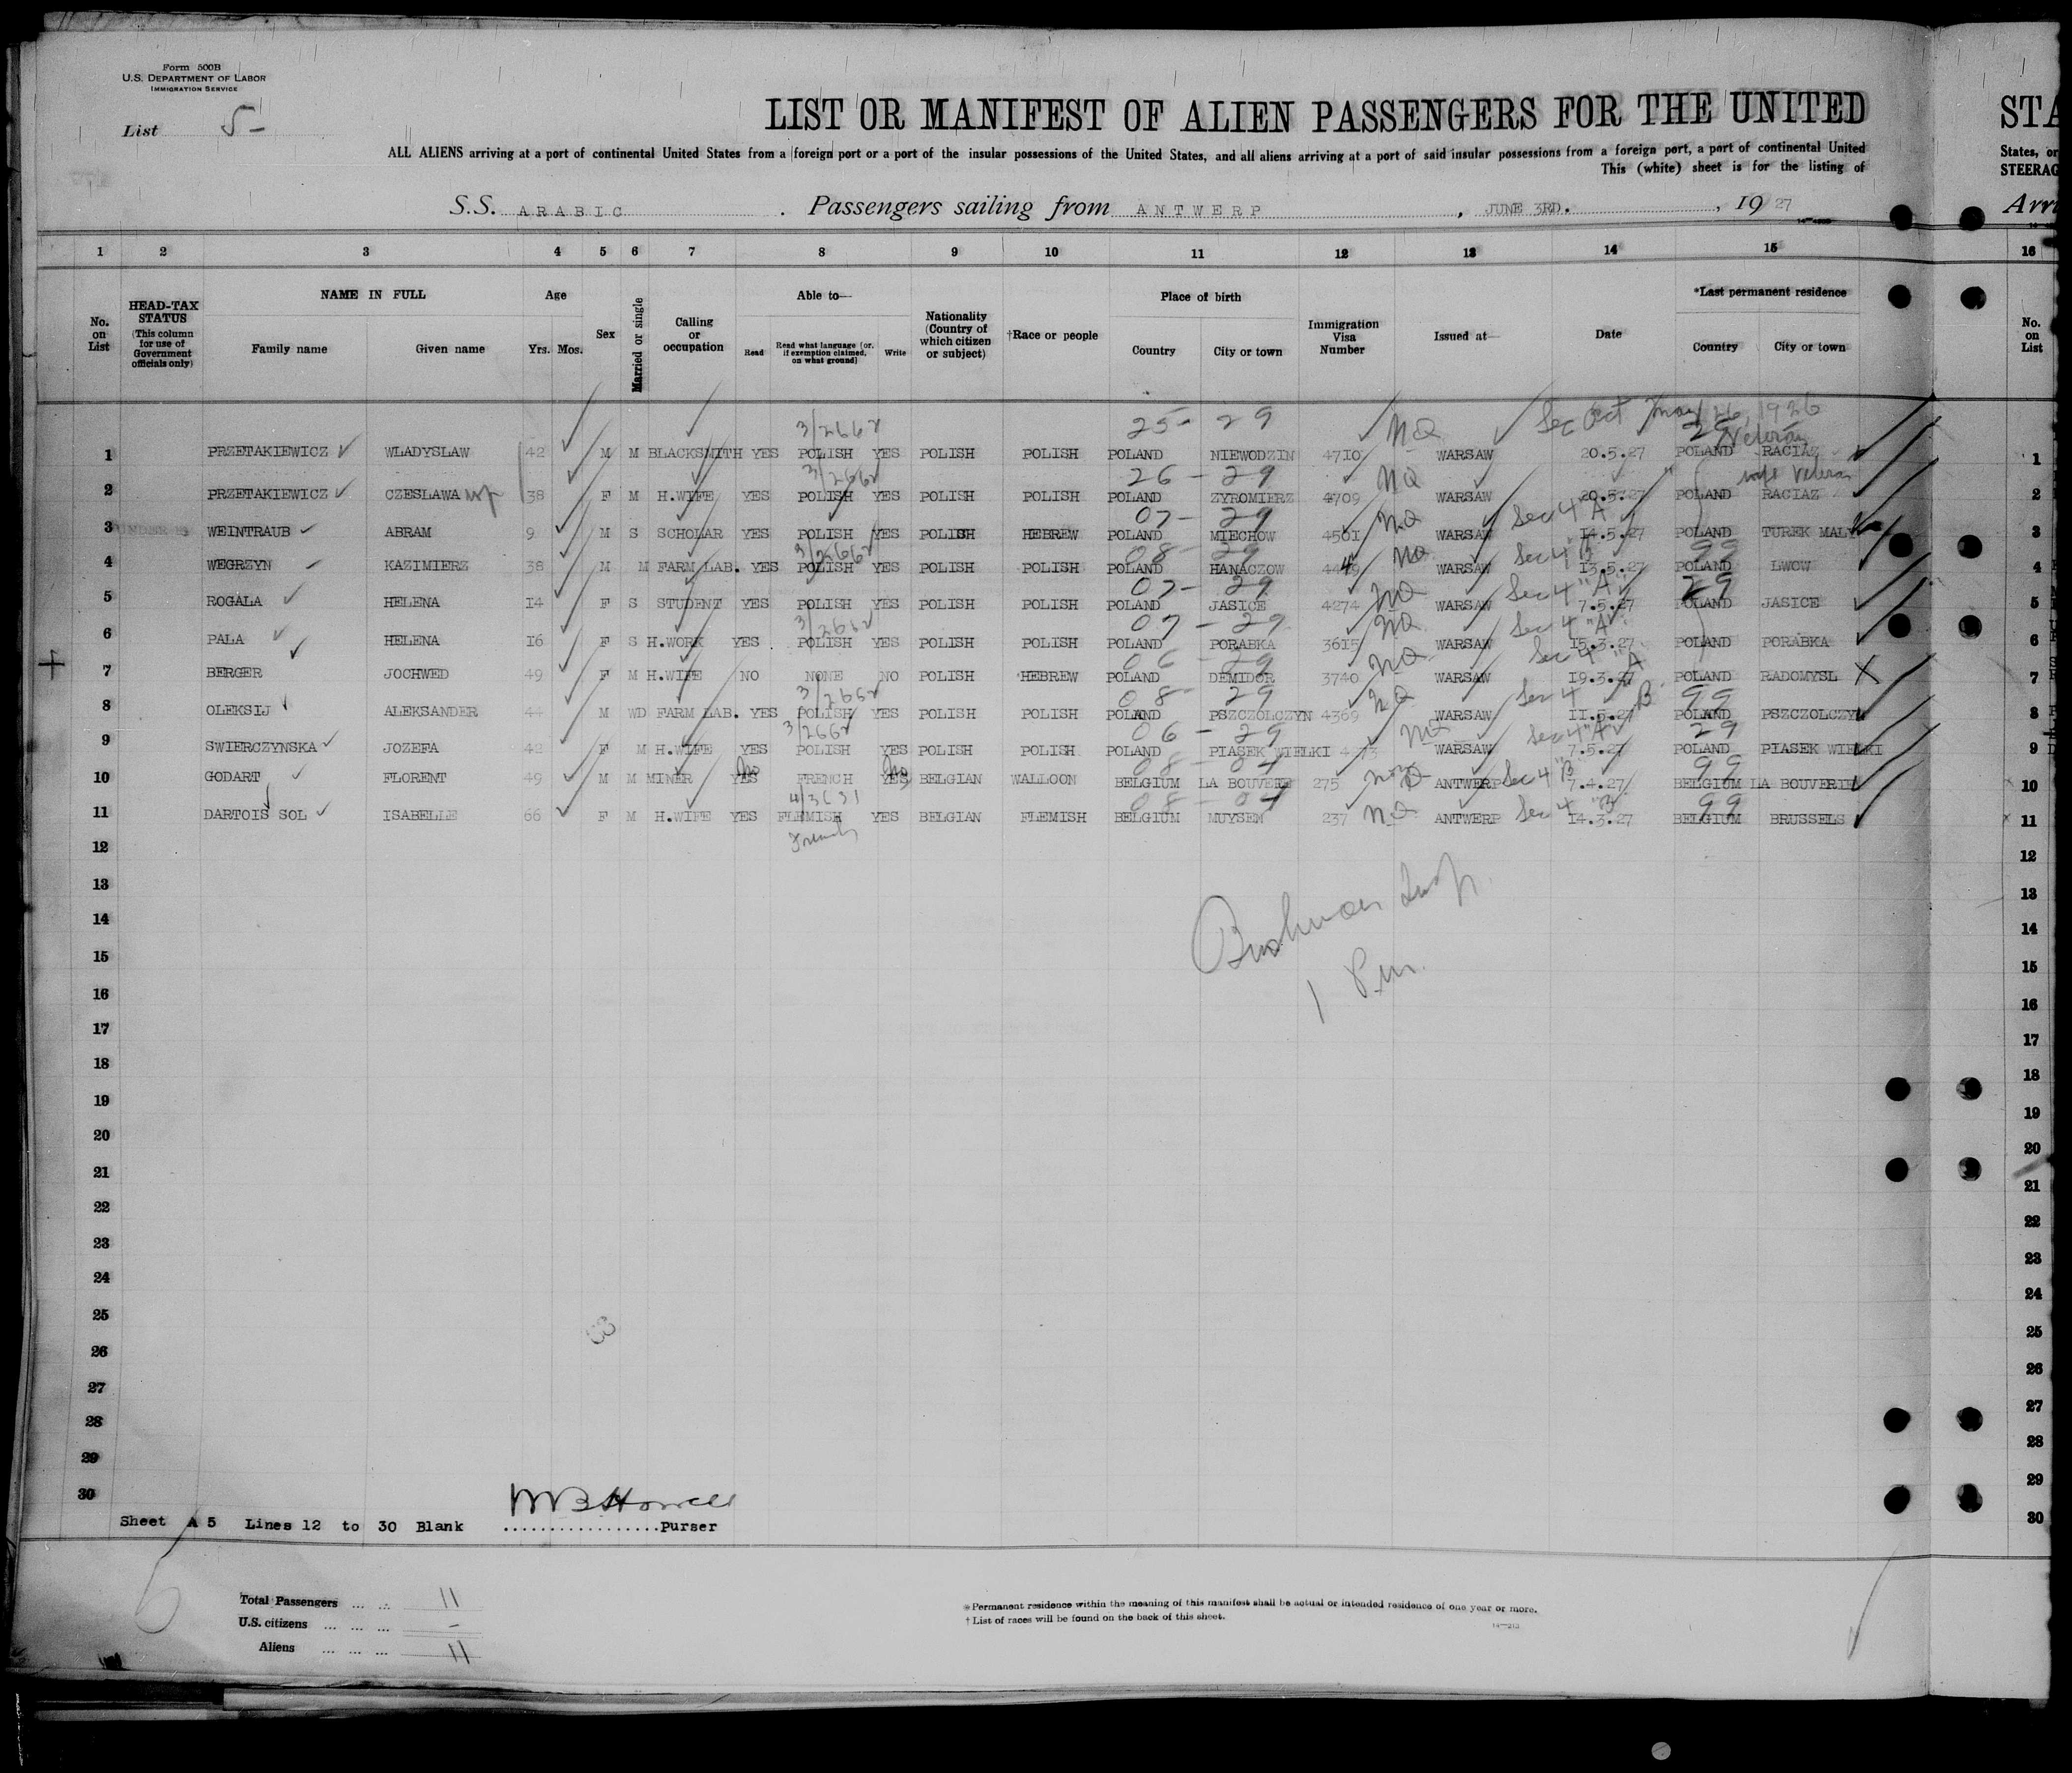 Form 500B
U.S. DEPARTMENT OF LABOR
IMMIGRATION SERVICE
List 5-
LIST OR MANIFEST OF ALIEN PASSENGERS FOR THE UNITED
STA
ALL ALIENS arriving at a port of continental United States from a foreign port or a port of the insular possessions of the United States, and all aliens arriving at a port of said insular possessions from a foreign port, a port of continental United
States, or
This (white) sheet is for the listing of
STEERAG
S.S. ARABIC . Passengers sailing from ANTWERP , JUNE 3RD. , 19 27
Arri
1 2 3 4 5 6 7 8 9 10 11 12 13 14 15 16
No. on List
HEAD-TAX STATUS (This column for use of Government officials only)
NAME IN FULL
Family name Given name
Age
Yrs. Mos.
Sex
Married or single
Calling or occupation
Able to—
Read Read what language (or, if exemption claimed, on what ground) Write
Nationality (Country of which citizen or subject)
†Race or people
Place of birth
Country City or town
Immigration Visa Number
Issued at—
Date
*Last permanent residence
Country City or town
No. on List
3/2662 25- 29 NQ Sec Act May 26, 1926 29 Veteran
1 PRZETAKIEWICZ WLADYSLAW 42 M M BLACKSMITH YES POLISH YES POLISH POLISH POLAND NIEWODZIN 4710 WARSAW 20.5.27 POLAND RACIAZ 1
3/2662 26 - 29 NQ " wife Veteran
2 PRZETAKIEWICZ CZESLAWA wf 38 F M H.WIFE YES POLISH YES POLISH POLISH POLAND ZYROMIERZ 4709 WARSAW 20.5.27 POLAND RACIAZ 2
07- 29 NQ Sec 4 "A"
3 UNDER WEINTRAUB ABRAM 9 M S SCHOLAR YES POLISH YES POLISH HEBREW POLAND MIECHOW 4561 WARSAW 14.5.27 POLAND TUREK MALY 3
3/2662 08- 29 NQ Sec 4 "B" 99
4 WEGRZYN KAZIMIERZ 38 M M FARM LAB. YES POLISH YES POLISH POLISH POLAND HANACZOW WARSAW 13.5.27 POLAND LWOW 4
07- 29 NQ Sec 4 "A" 29
5 ROGALA HELENA 14 F S STUDENT YES POLISH YES POLISH POLISH POLAND JASICE 4274 WARSAW 7.5.27 POLAND JASICE 5
3/2662 07 - 29 NQ Sec 4 "A"
6 PALA HELENA 16 F S H.WORK YES POLISH YES POLISH POLISH POLAND PORABKA 3615 WARSAW 15.3.27 POLAND PORABKA 6
06 - 29 NQ Sec 4 "A
7 BERGER JOCHWED 49 F M H.WIFE NO NONE NO POLISH HEBREW POLAND DEMIDOR 3740 WARSAW 19.3.27 POLAND RADOMYSL X 7
3/2662 08- 29 NQ Sec 4 B 99
8 OLEKSIJ ALEKSANDER 44 M WD FARM LAB. YES POLISH YES POLISH POLISH POLAND PSZCZOLCZYN 4369 WARSAW 11.5.27 POLAND PSZCZOLCZYN 8
3/2662 06 - 29 NQ Sec 4 "A" 29
9 SWIERCZYNSKA JOZEFA 42 F M H.WIFE YES POLISH YES POLISH POLISH POLAND PIASEK WIELKI WARSAW 7.5.27 POLAND PIASEK WIELKI 9
No No 08 - 04 Sec 4 "B" 99
10 GODART FLORENT 49 M M MINER YES FRENCH YES BELGIAN WALLOON BELGIUM LA BOUVERIE 275 ANTWERP 7.4.27 BELGIUM LA BOUVERIE 10
4/3631 08 - 04 NQ Sec 4 "B" 99
11 DARTOIS SOL ISABELLE 66 F M H.WIFE YES FLEMISH YES BELGIAN FLEMISH BELGIUM MUYSEN 237 ANTWERP 14.3.27 BELGIUM BRUSSELS 11
French
12 12
13 13
14 14
Bushman Insp.
15 15
16 1 Pm. 16
17 17
18 18
19 19
20 20
21 21
22 22
23 23
24 24
25 25
26 26
27 27
28 28
29 29
30 30
WB Howell
Sheet A 5 Lines 12 to 30 Blank .................Purser
Total Passengers ... ... 11
U.S. citizens ... ... ... -
Aliens ... ... ... 11
*Permanent residence within the meaning of this manifest shall be actual or intended residence of one year or more.
†List of races will be found on the back of this sheet.